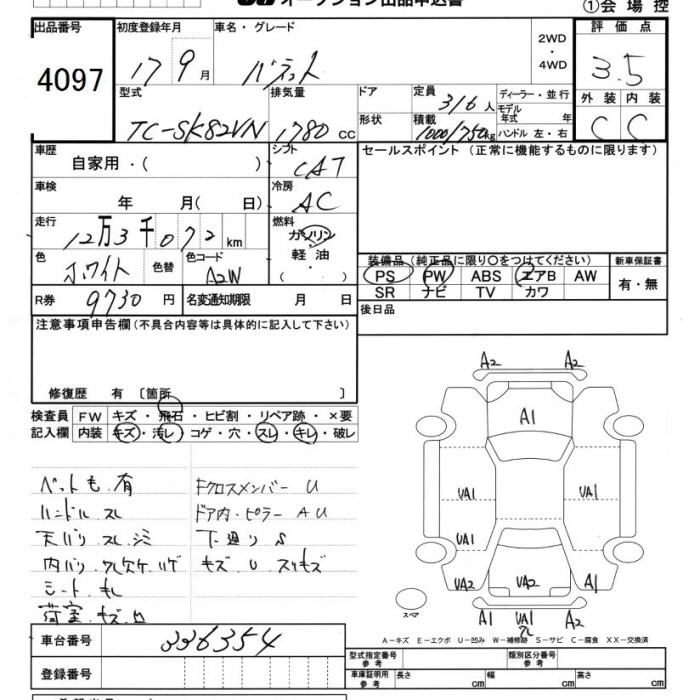 オークション出品申込書
①会場控
出品番号 初度登録年月 車名・グレード 2WD・4WD 評価点
4097 17 9月 バネット 3.5
型式 排気量 ドア 定員 3/6人 ディーラー・並行
TC-SK82VN 1780 CC 形状 積載 1000/750kg モデル年式 年 ハンドル 左・右
外装 内装
C C
車歴 自家用・( ) シフト CAT セールスポイント (正常に機能するものに限ります)
車検 年 月( 日) 冷房 AC
走行 12万3千072km 燃料 ガソリン・軽油・( )
色 ホワイト 色替 色コード A2W
装備品 (純正品に限り○をつけてください) 新車保証書
PS PW ABS エアB AW 有・無
SR ナビ TV カワ
R券 9730円 名変通知期限 月 日
後日品
注意事項申告欄 (不具合内容等は具体的に記入して下さい)
修復歴 有 〔箇所 〕
検査員 FW キズ・飛石・ヒビ割・リペア跡・×要
記入欄 内装 キズ・汚レ・コゲ・穴・スレ・キレ・破レ
ハンドル スレ ドア内・ピラー AU
天バリ スレ・シミ 下廻り S
キズ・U スリキズ
シート キレ
荷室 キズ・凹
FクロスメンバーU
A2 A2
A1
UA1 UA1
UA1
UA2 UA2 A1
A1 UA1 A2
スペア
A-キズ E-エクボ U-凹み W-補修跡 S-サビ C-腐食 XX-交換済
車台番号 336354
型式指定番号 参考 類別区分番号 参考
登録番号 車庫証明用 参考 長さ cm 幅 cm 高さ cm